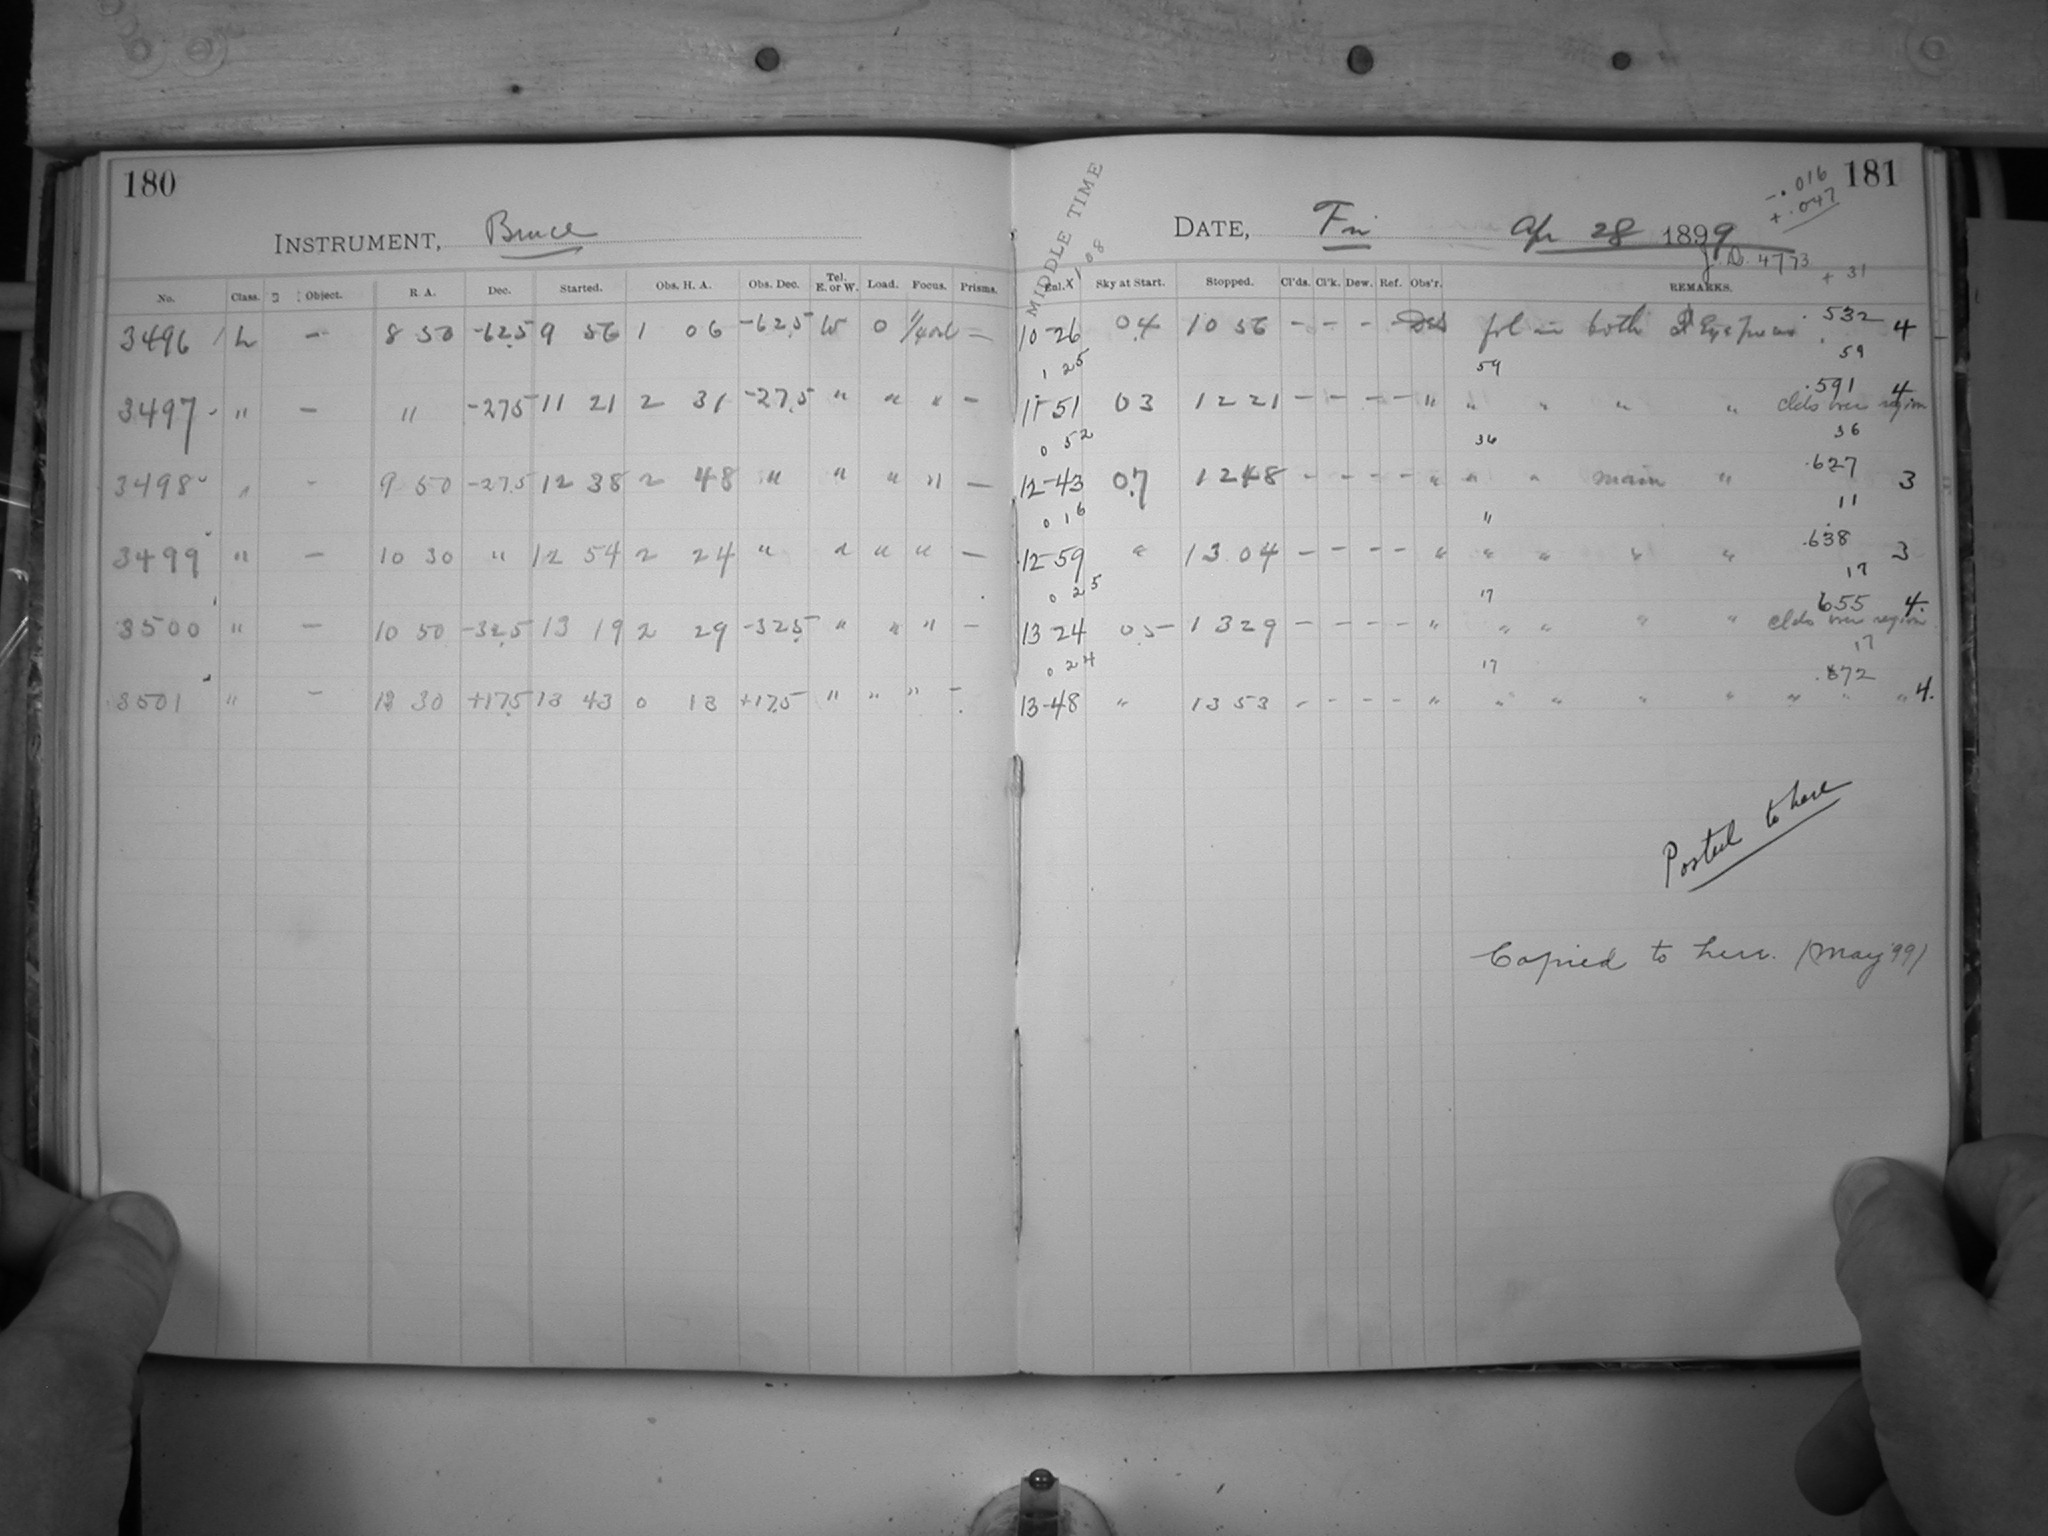 180
INSTRUMENT, Bruce
No. Class. Object. R. A. Dec. Started. Obs. H. A. Obs. Dec. Tel. E. or W. Load. Focus. Prisms.
3496 L — 8 50 -62.5 9 56 1 06 -62.5 W 0 —
3497 " — " -27.5 11 21 2 31 -27.5 " " " —
3498 " - 9 50 -27.5 12 38 2 48 " " " " —
3499 " — 10 30 " 12 54 2 24 " " " " —
3500 " — 10 50 -32.5 13 19 2 29 -32.5 " " " —
3501 " — 12 30 +17.5 13 43 0 13 +17.5 " " " -
181
-.016
+.047
MIDDLE TIME
DATE, Fri Apr 28 1899
J. D. 4773 + 31
Enl. Sky at Start. Stopped. Cl'ds. Cl'k. Dew. Ref. Obs'r. REMARKS.
10-26 0.4 10 56 - - - - fol in both .532 4
1 25 59 59
11-51 03 12 21 - - - - " " " " " .591 4
clds over region
0 52 36 36
12-43 0.7 12 48 - - - - " " " main " .627 3
0 16 " 11
12-59 " 13 04 - - - - " " " " " .638 3
0 25 17 17
13-24 0.5 13 29 - - - - " " " " " .655 4.
clds over region
0 24 17 17
13-48 " 13 53 - - - - " " " " " .672 " " " 4.
Posted to here
Copied to here. (May '99)